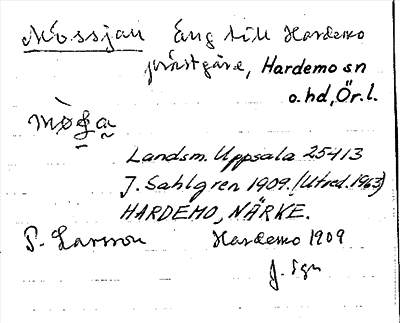 Mossjan äng till Hardemo
prästgård, Hardemo sn
o.hd, Ör.l.
Landsm. Uppsala 25413
J. Sahlgren 1909. (Utred. 1963)
HARDEMO, NÄRKE.
P. Larsson Hardemo 1909
J. Sgn